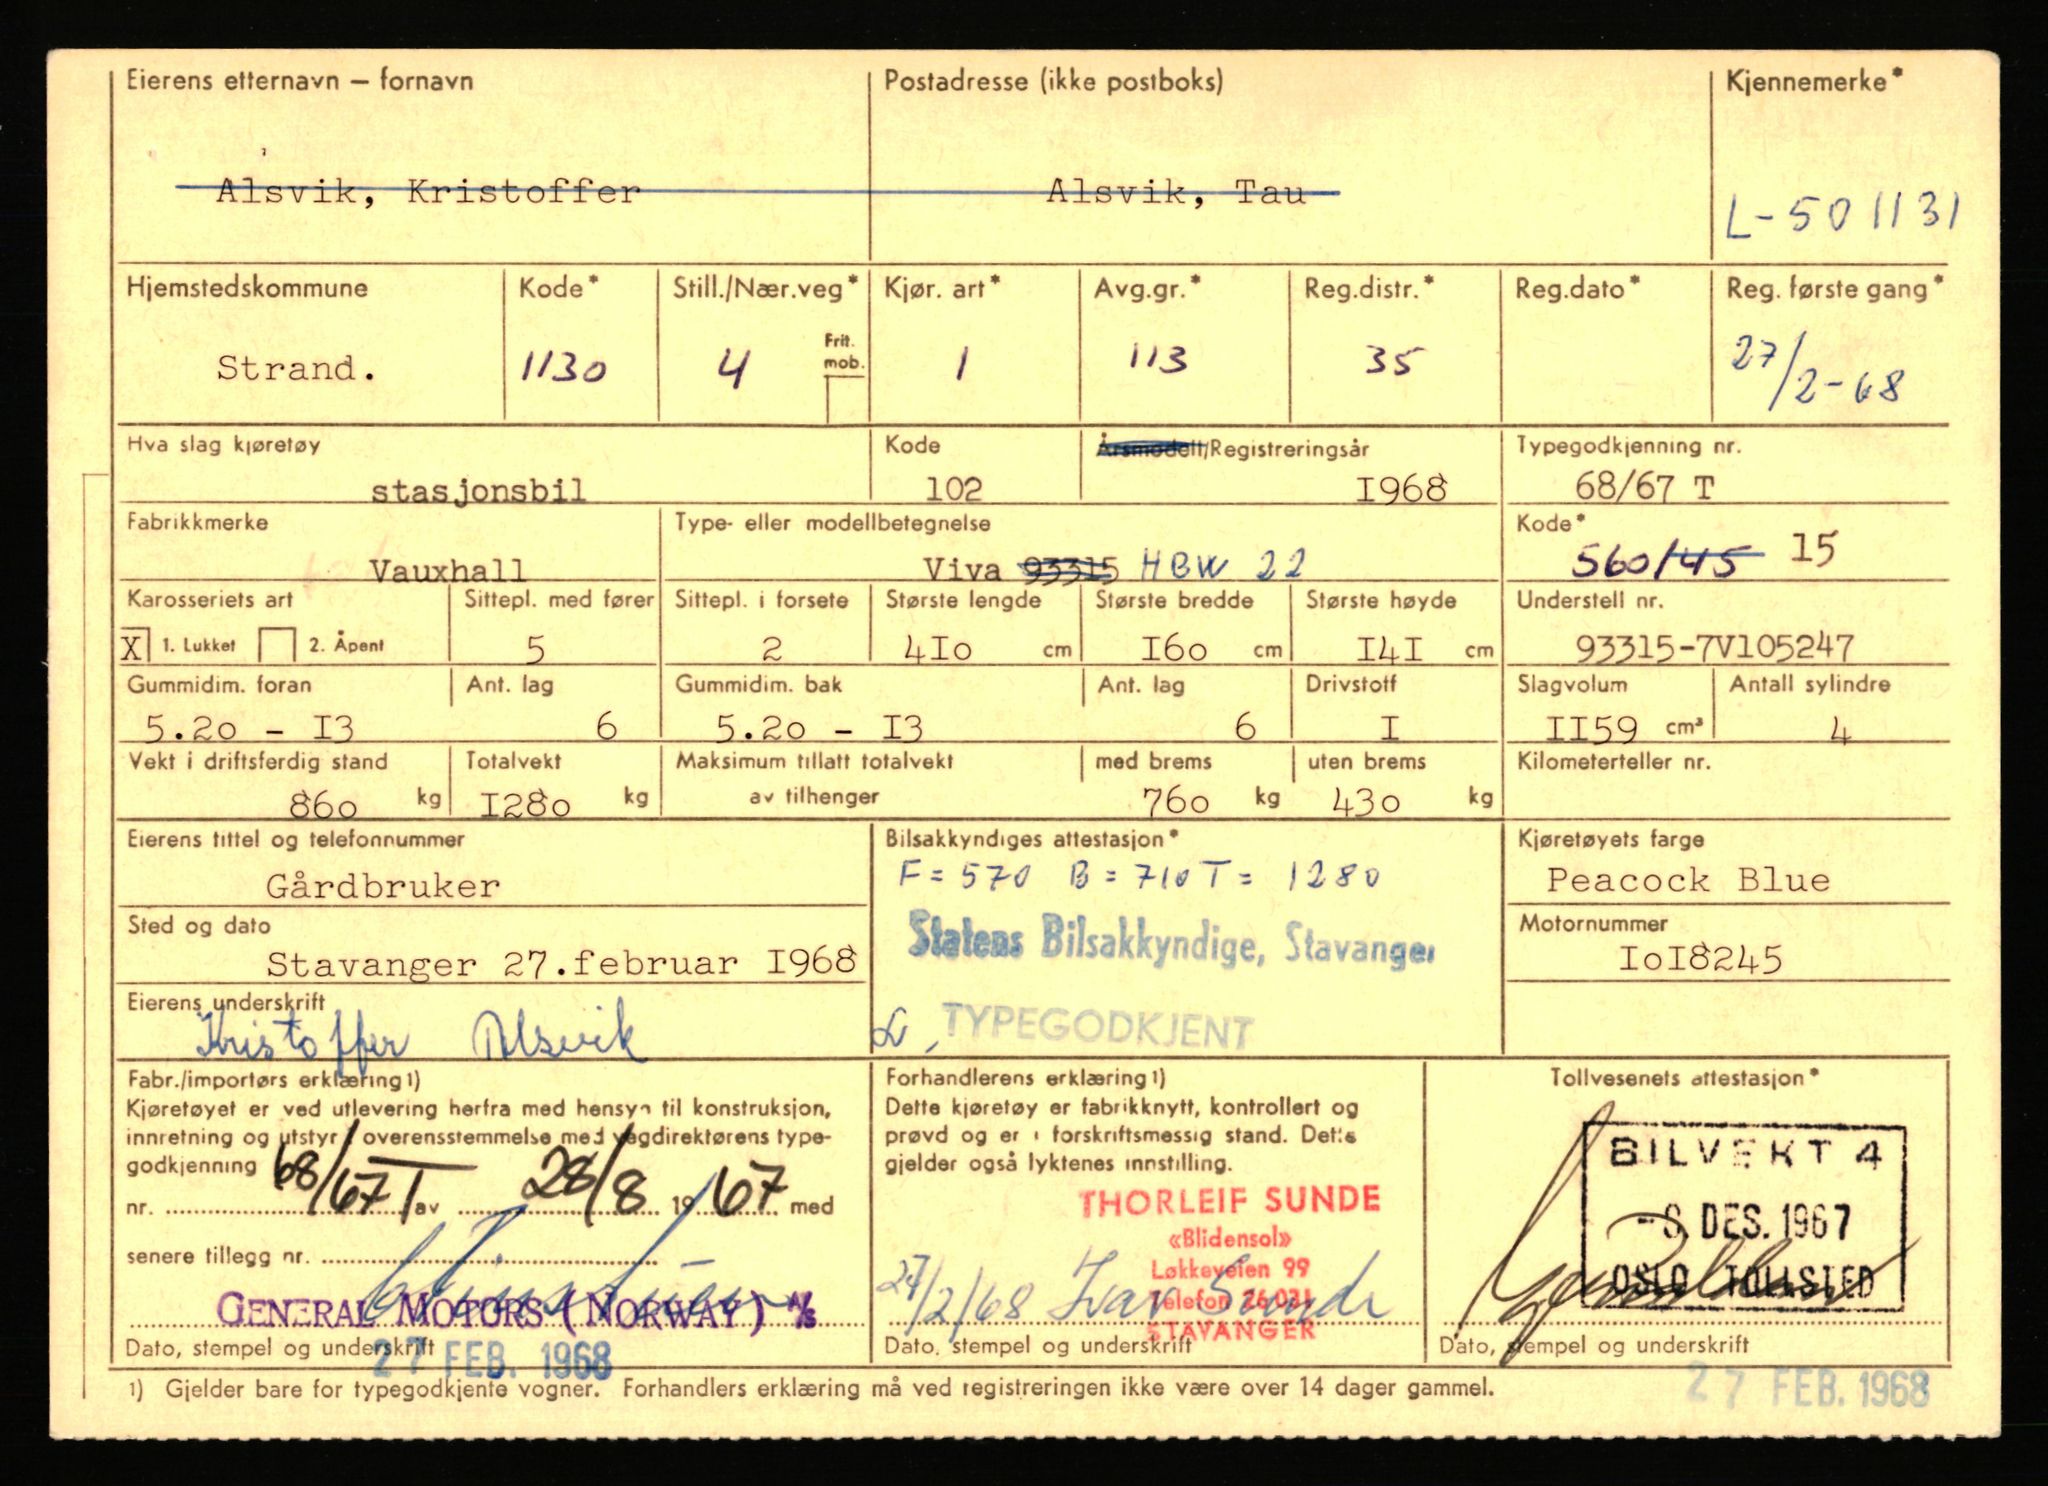 Eierens etternavn — fornavn
Postadresse (ikke postboks)
Kjennemerke*
Alsvik, Kristoffer
Alsvik, Tau
L-501131
Hjemstedskommune
Kode*
Still./Nær.veg*
Kjør. art*
Avg.gr.*
Reg.distr.*
Reg.dato*
Reg. første gang*
Strand.
1130
4
Frit. mob.
1
113
35
27/2-68
Hva slag kjøretøy
Kode
Årsmodell/Registreringsår
Typegodkjenning nr.
stasjonsbil
102
I968
68/67 T
Fabrikkmerke
Type- eller modellbetegnelse
Kode*
Vauxhall
Viva 93315 HBW 22
560/45 15
Karosseriets art
Sittepl. med fører
Sittepl. i forsete
Største lengde
Største bredde
Største høyde
Understell nr.
X 1. Lukket 2. Åpent
5
2
4Io cm
I6o cm
I4I cm
93315-7V105247
Gummidim. foran
Ant. lag
Gummidim. bak
Ant. lag
Drivstoff
Slagvolum
Antall sylindre
5.2o - I3
6
5.2o - I3
6
I
II59 cm³
4
Vekt i driftsferdig stand
Totalvekt
Maksimum tillatt totalvekt
med brems
uten brems
Kilometerteller nr.
86o kg
I28o kg
av tilhenger
76o kg
43o kg
Eierens tittel og telefonnummer
Bilsakkyndiges attestasjon*
Kjøretøyets farge
Gårdbruker
F = 570 B = 710 T = 1280
Peacock Blue
Sted og dato
Statens Bilsakkyndige, Stavanger
Motornummer
Stavanger 27.februar I968
IoI8245
Eierens underskrift
Kristoffer Alsvik
TYPEGODKJENT
Fabr./importørs erklæring1)
Kjøretøyet er ved utlevering herfra med hensyn til konstruksjon,
innretning og utstyr i overensstemmelse med vegdirektørens type-
godkjenning
nr. 68/67T av 28/8 1967 med
senere tillegg nr.
GENERAL MOTORS (NORWAY) A/S
Dato, stempel og underskrift
27 FEB. 1968
Forhandlerens erklæring1)
Dette kjøretøy er fabrikknytt, kontrollert og
prøvd og er i forskriftsmessig stand. Dette
gjelder også lyktenes innstilling.
THORLEIF SUNDE
«Blidensol»
Løkkeveien 99
Telefon 26 031
STAVANGER
27/2/68 Ivar Sunde
Dato, stempel og underskrift
Tollvesenets attestasjon*
BILVEKT 4
-8. DES. 1967
OSLO TOLLSTED
Dato, stempel og underskrift
27 FEB. 1968
1) Gjelder bare for typegodkjente vogner. Forhandlers erklæring må ved registreringen ikke være over 14 dager gammel.